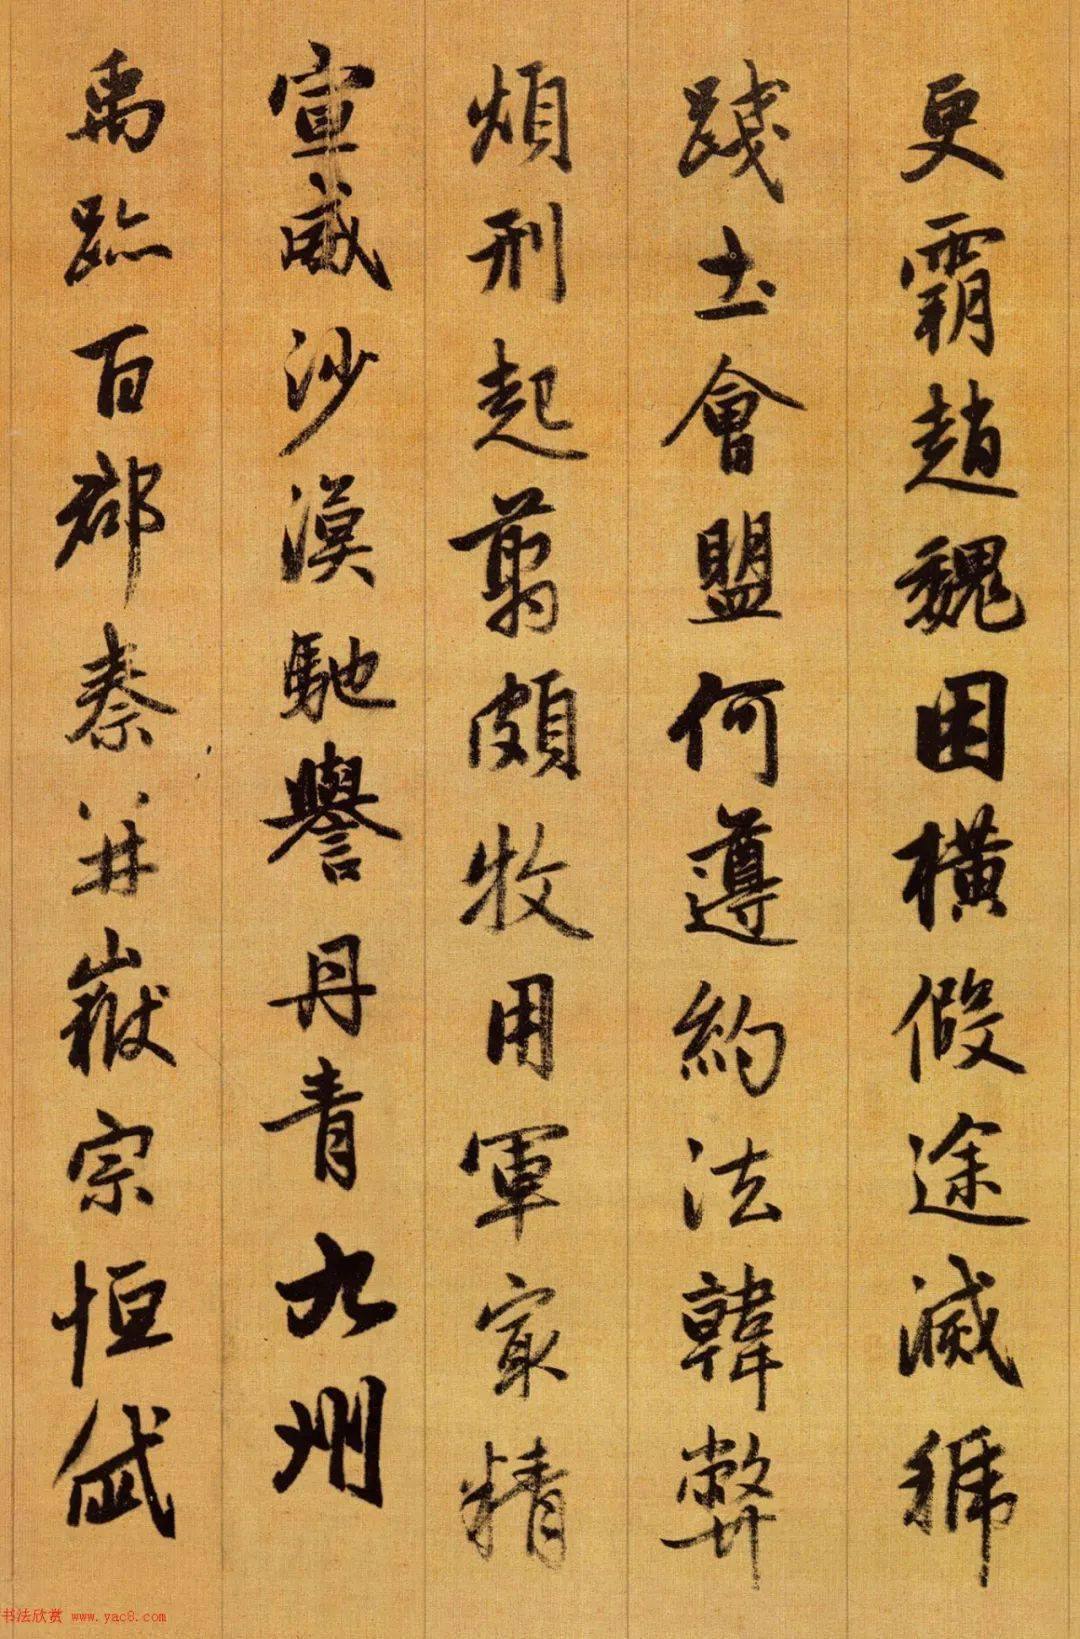 更霸趙魏困橫假途滅虢
踐土會盟何遵約法韓弊
煩刑起翦頗牧用軍最精
宣威沙漠馳譽丹青九州
禹跡百郡秦并嶽宗恒岱
书法欣赏 www.yac8.com